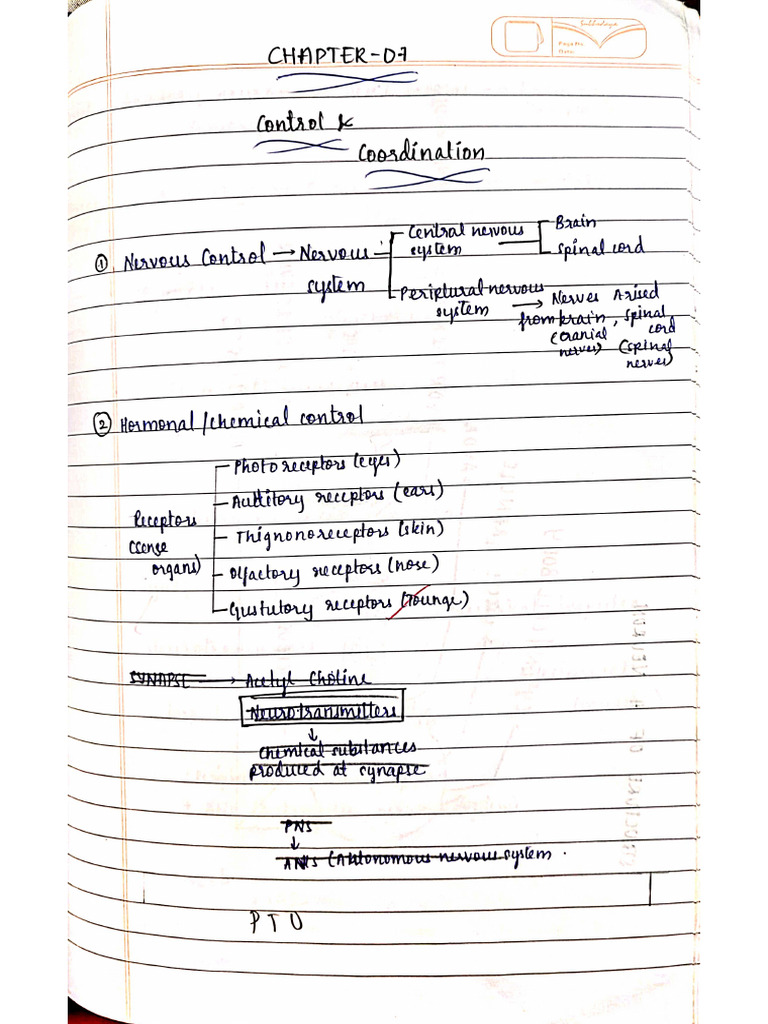 CHAPTER-07
Control &
Coordination
① Nervous Control → Nervous system
Central nervous system
Brain
Spinal cord
Periptural nervous system → Nerves Arised
from brain, spinal
(cranial nerves) cord
(spinal nerves)
② Hormonal/chemical control
Receptors
(Sense
organs)
Photo receptors (eyes)
Auditory receptors (ears)
Thignonoreceptors (skin)
Olfactory receptors (nose)
Gustutory receptors (Tounge)
SYNAPSE → Acetyl Choline
Neurotransmitters
↓
Chemical substances
produced at synapse
PNS
↓
ANS (Autonomous nervous system.
PTO